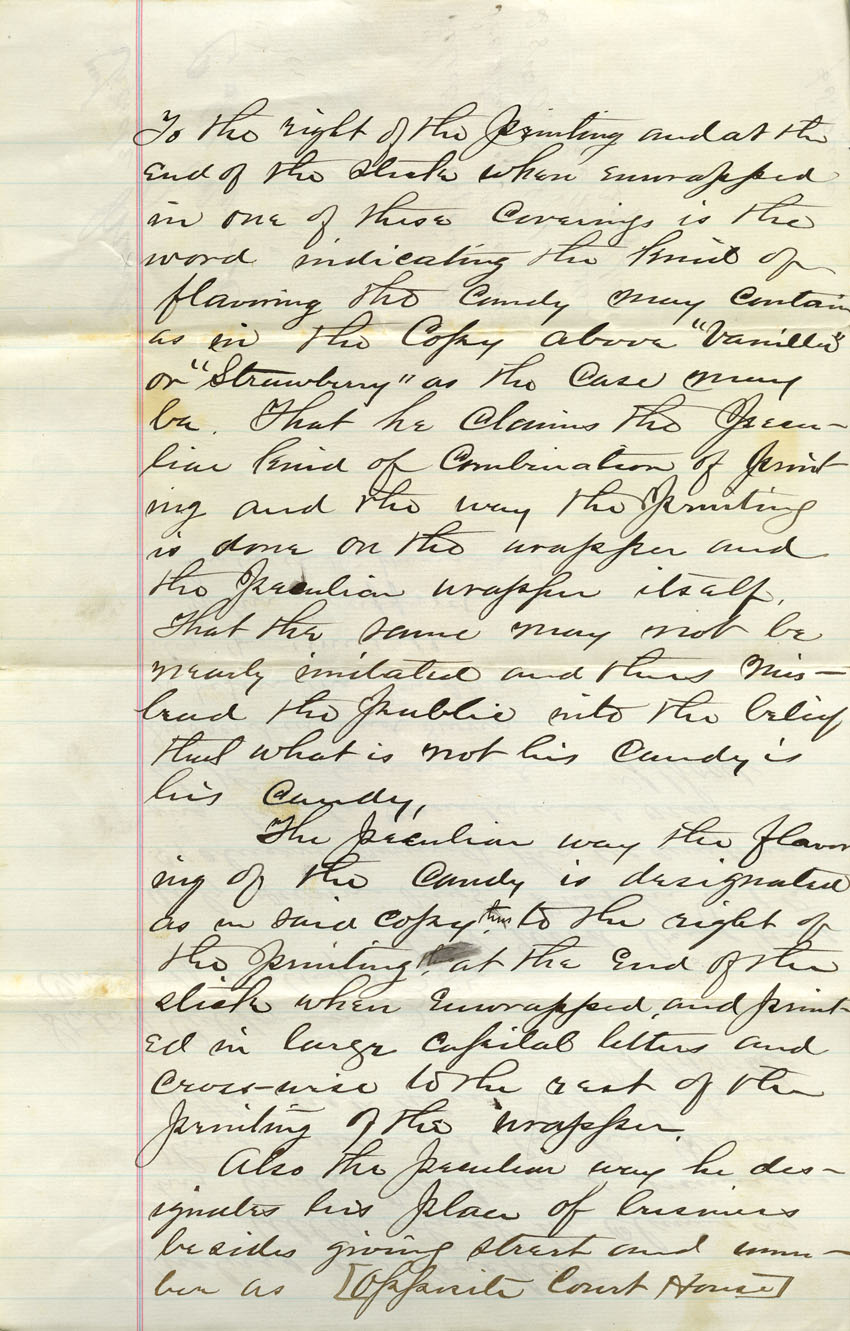 To the right of the printing and at the
end of the stick when enwrapped
in one of these coverings is the
word indicating the kind of
flavoring the candy may contain
as in the Copy above "Vanilla"
or "Strawberry" as the case may
be. That he claims the pecu-
liar kind of combination of print
ing and the way the printing
is done on the wrapper and
the peculiar wrapper itself.
That the same may not be
nearly imitated and thus mis-
lead the public into the belief
that what is not his candy is
his candy.
The peculiar way the flavor
ing of the candy is designated
as in said copy, thus to the right of
the printing, at the end of the
stick when enwrapped, and print-
ed in large capital letters and
cross-wise to the rest of the
printing of the wrapper.
Also the peculiar way he des-
ignates his place of business
besides giving street and num-
ber as [Opposite Court House]